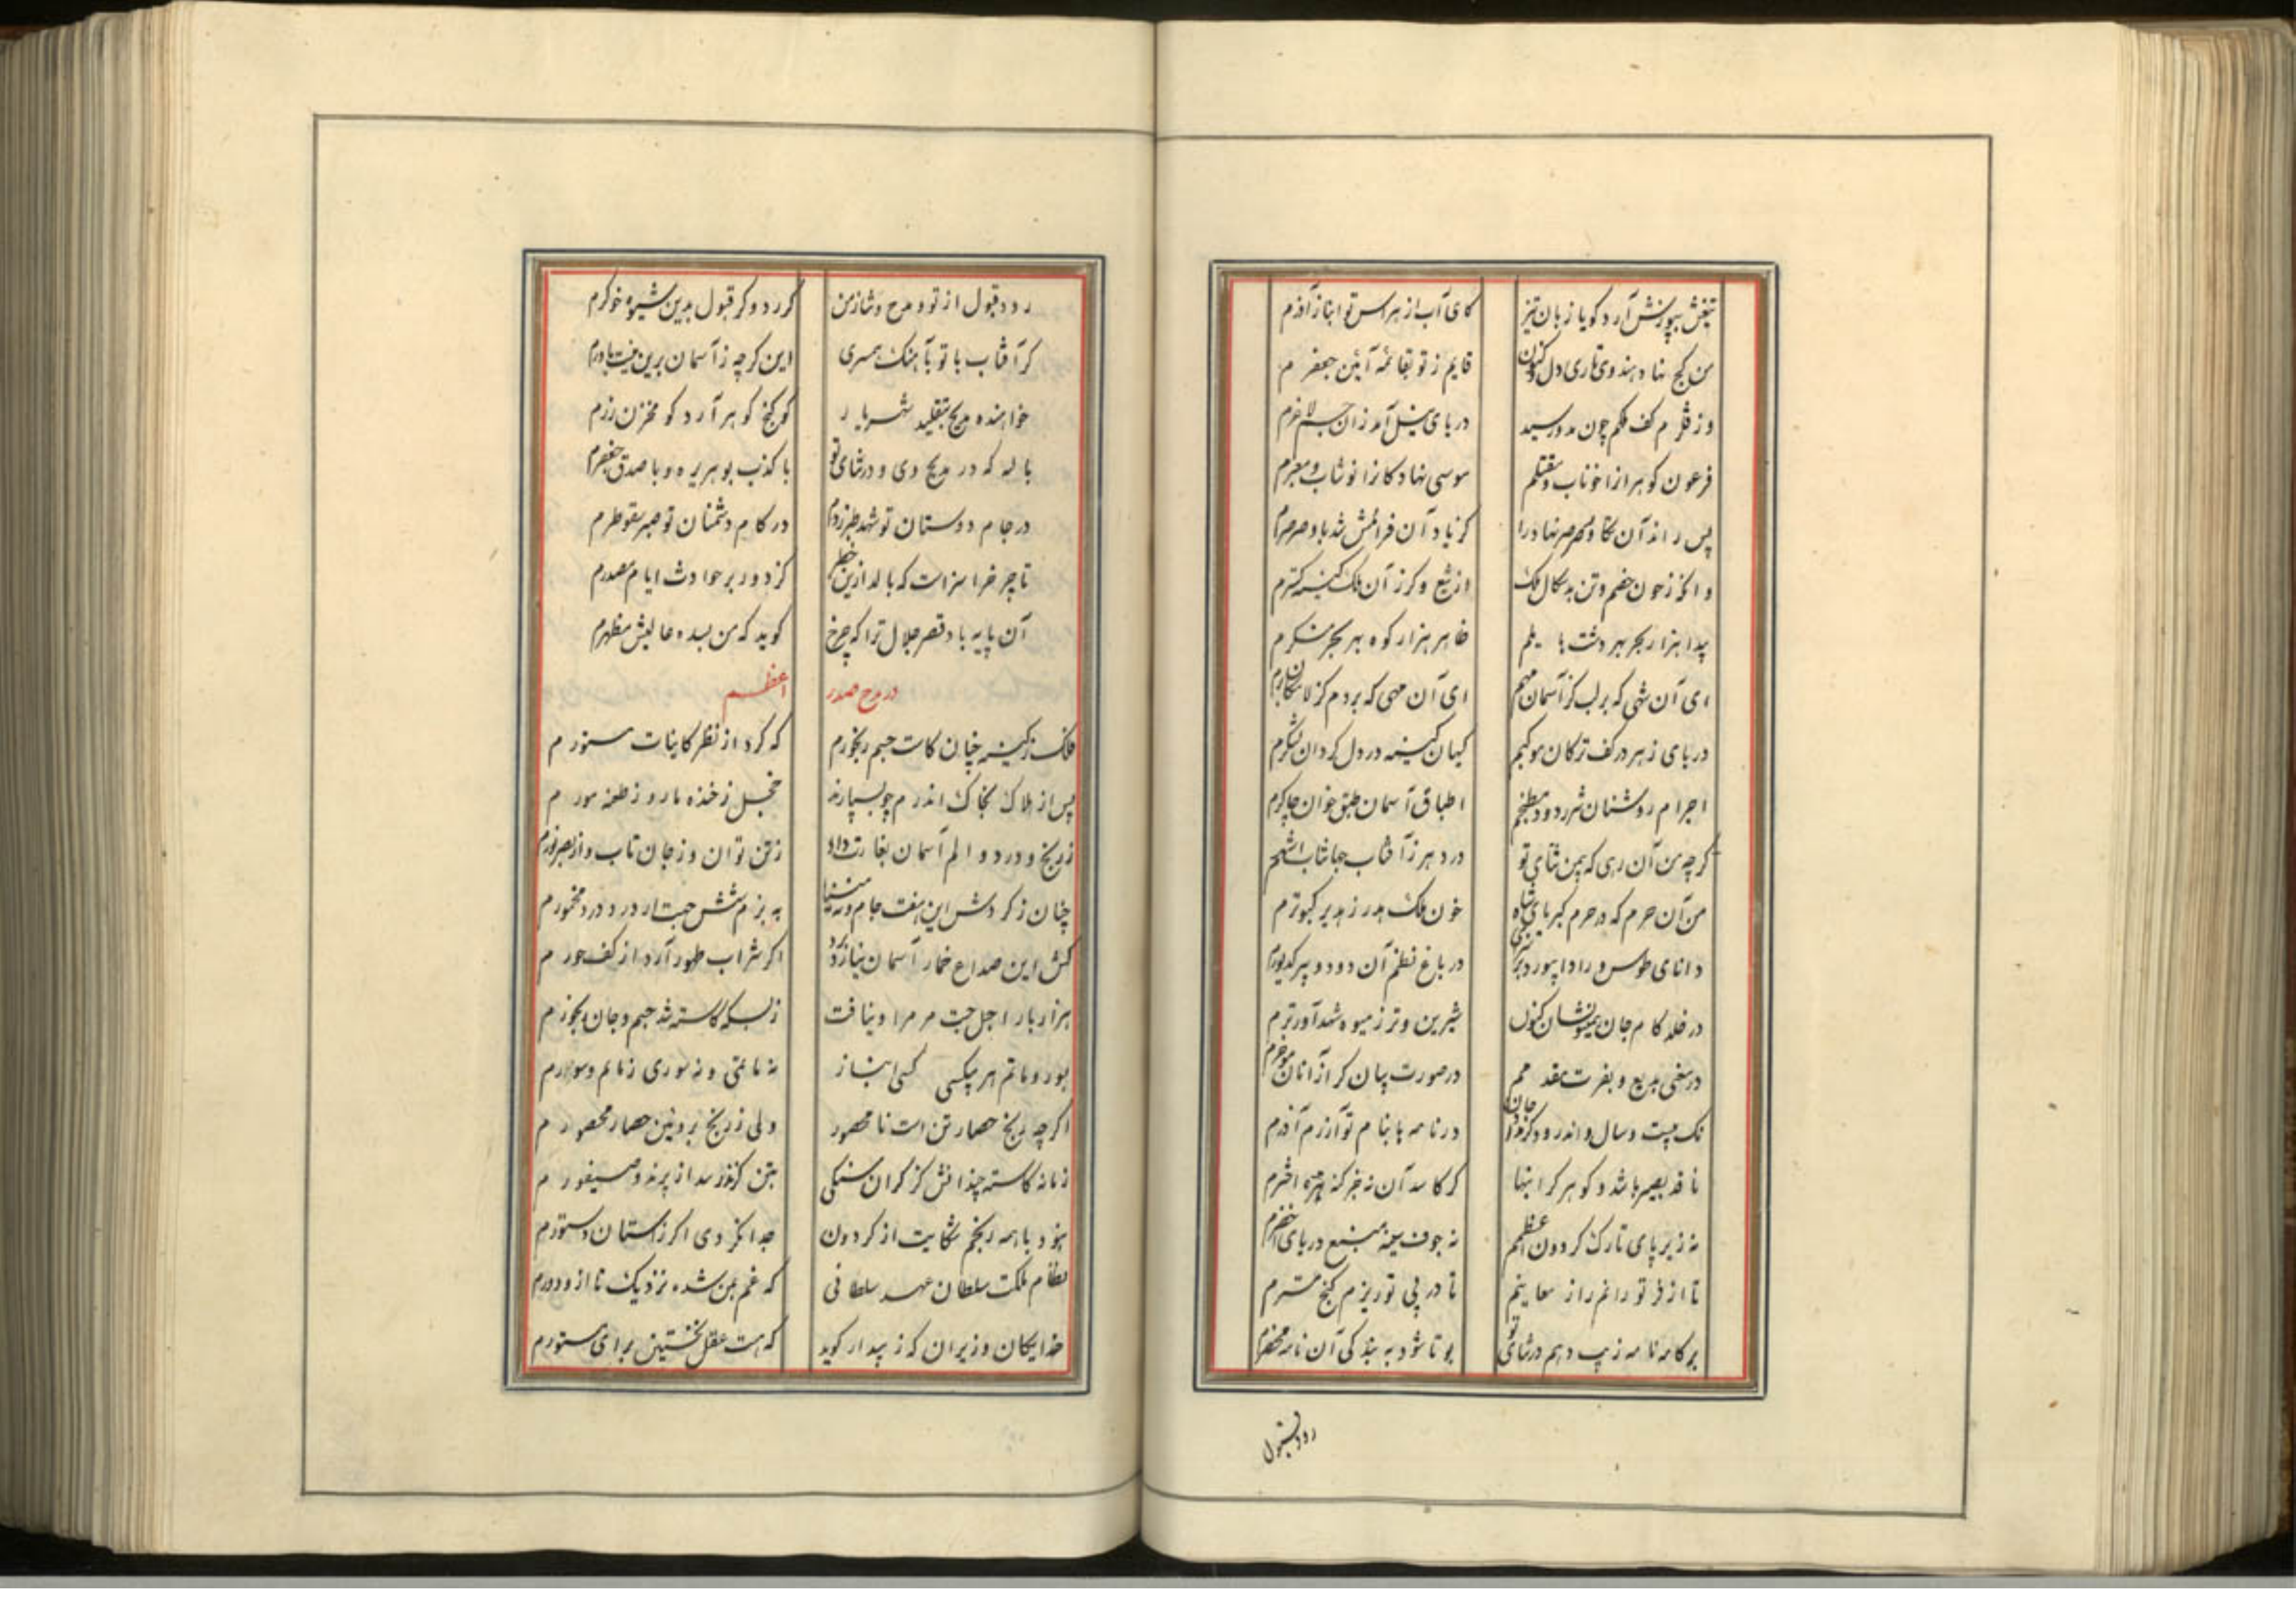 تیغش بپوزش آرد کویا زبان تیز کای آب از هراس تو انباز آذرم
من کج نهاد هندوی تاری دل کنون قایم ز تو بقائمه آیین جعفرم
وز قلزم کف ملکم چون مدد رسید دریای نیل آمد زان جسم لاغرم
فرعون کوهر از خوناب موسی نهاد کانرا نوشاب
پس راند آن کاو صرصر نهاد را کز یاد آن فرامش شد باد صرصرم
وانکه زخون خصم و تن بدسکال ملک از تیغ و کرز آن ملک کینه کسترم
پیدا هزار بحر بهر دشت یلم ظاهر هزار کوه بهر بحر منکرم
ای آن شهی که بر لب کز آسمان مهم ای آن مهی که بر دم کز لامکان
دریای زهر در کف ترکان موکبم کیهان کینه در دل کردان لشکرم
اجرام روشنان شرر دود مطبخم اطباق آسمان طبق خوان چاکرم
کرچه من آن رهی که بمن ثنای تو در دهر ز آفتاب جهانتاب اشهرم
من آن حرم که در حرم کبریای شاه خون ملک هدر ز هدیر کبوترم
دانای طوس و راد ابیورد در باغ نظم آن دو دو پیر کدیورم
در خلد کام جان نشان کنون شیرین و تر ز میوه شهد آور ترم
در معنی بدیع و بفرت مقدمم در صورت بیان کر از آنان موخرم
نک بیست و سال و اندر در نامه با بنام تو آزرم آذرم
ناقد بصیر باشد و کوهر کرانبها کر کاسد آن نه جز کنه اخترم
نه زیر پای تارک کردون اعظمم نه جوف منبع دریای اخضرم
تا از فر تو دانم راز معاینم تا در پی تو ریزم کنج مسترم
بر کامه نامه زیب دهم در ثنای تو بو تا شود به بندکی آن نامه محضرم
رد و قبول
رد و قبول از تو و مدح و ثنا ز من کر رد و کر قبول بدین شیوه خوکرم
کر آفتاب با تو بآهنک همسری این کرچه ز آسمان برین نیست باورم
خواهنده مدیح بتقلید شهریار کو کنج کوهر آرد کو مخزن زرم
بالله که در مدیح وی و در ثنای تو با کذب بوهریره و با صدق جعفرم
در جام دوستان تو شهد طبرزدم در کام دشمنان تو صبر سقوطرم
تا چرخ را سزاست که بالد ازین خطر کز دور بر حوادث ایام مصدرم
آن پایه باد قصر جلال ترا که چرخ کوید که من بسده عالیش مظهرم
در مدح صدر اعظم
فلک ز کینه چنان کاست جسم رنجورم که کرد از نظر کاینات مستورم
پس از هلاک بخاک اندرم چو بسپارند خجل ز خنده مار و ز طعنه مورم
ز رنج و درد و الم آسمان بغارت داد ز تن توان و ز جان تاب و از بصر نورم
چنان ز کردش این هفت جام و نه مینا به بزم شش جهت از درد درد مخمورم
کش این صداع خمار آسمان نیازارد اکر شراب طهور آرد از کف حورم
هزار بار اجل جست مر مرا و نیافت ز بسکه کاسته شد جسم و جان رنجورم
بسور و ماتم هر بیکسی کسی انباز نه ماتمی و نه سوری ز ماتم و سورم
اکرچه رنج حصار تن است نامحصور ولی ز رنج برویین حصار محصورم
زمانه کاسته چندانش کز کران سنکی بتن کزند رسد از پرند و سیفورم
نبود با همه رنجم شکایت از کردون جدا نکردی اکر ز آستان دستورم
نظام ملکت سلطان عهد سلطانی که غم بمن شده نزدیک تا ازو دورم
خدایکان وزیران که ز پیدار کوید که هست عقل نخستین برای مستورم